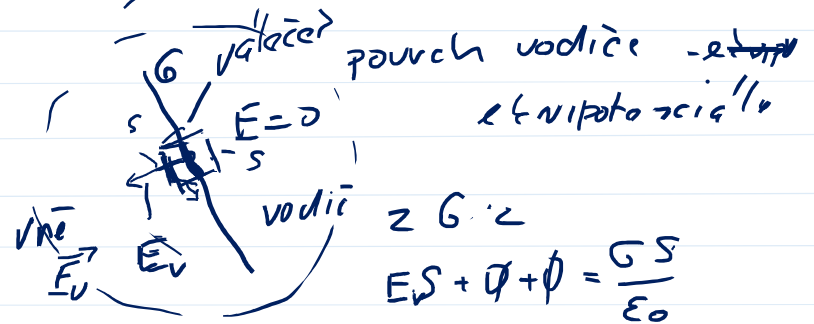 váleček
σ
povrch vodiče - ekvip
ekvipotenciál
s
E = 0
s
vodič
vně
E_v
E_v
z G.z
E_v S + 0 + 0 = σS / ε0